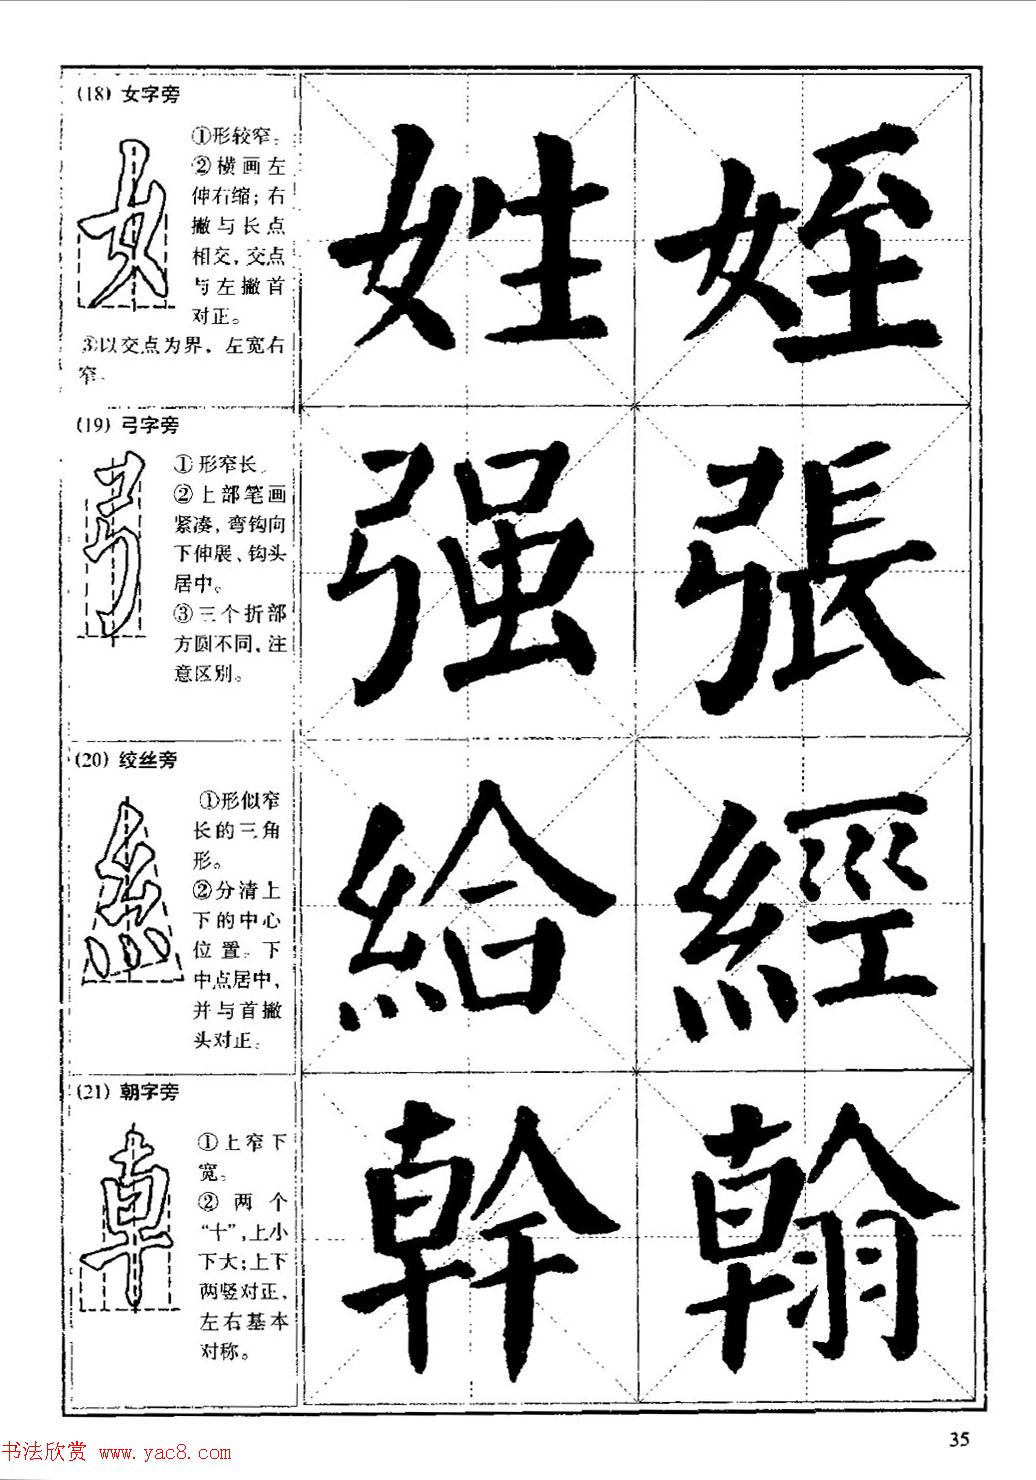 (18) 女字旁
①形较窄。
②横画左
伸右缩；右
撇与长点
相交，交点
与左撇首
对正。
③以交点为界，左宽右
窄。
姓 姪
(19) 弓字旁
①形窄长。
②上部笔画
紧凑，弯钩向
下伸展、钩头
居中。
③三个折部
方圆不同，注
意区别。
强 張
(20) 绞丝旁
①形似窄
长的三角
形。
②分清上
下的中心
位置。下
中点居中，
并与首撇
头对正。
給 經
(21) 朝字旁
①上窄下
宽。
②两个
“十”，上小
下大；上下
两竖对正，
左右基本
对称。
幹 翰
35
书法欣赏 www.yac8.com